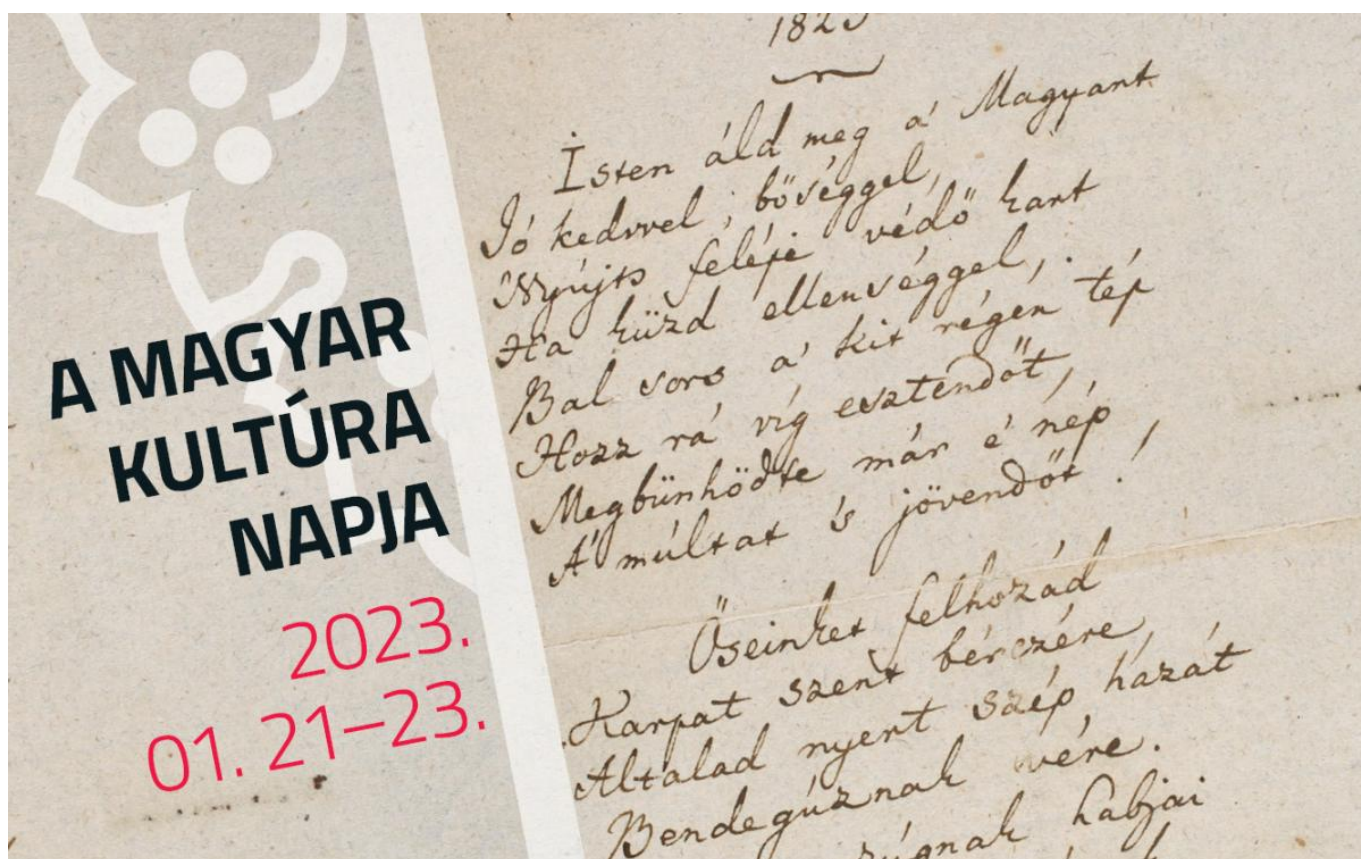 A MAGYAR
KULTÚRA
NAPJA
2023.
01. 21–23.
1823
Isten áld meg a' Magyart
Jó kedvvel, bőséggel,
Nyújts feléje védő kart
Ha küzd ellenséggel,
Bal sors a' kit régen tép
Hozz rá víg esztendőt,
Megbünhödte már e' nép
A' múltat 's jövendőt!
Őseinket felhozád
Karpat szent bérczére,
Altalad nyert szép hazát
Bendegúznak vére.
habjai